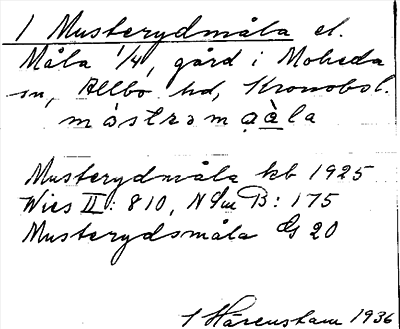 1 Musterydmåla el.
Måla 1/4, gård i Moheda
sn, Allbo hd, Kronobol.
Musterydmåla kb 1925
Wies II: 810, NSm B: 175
Musterydsmåla G 20
1 Härenstam 1936